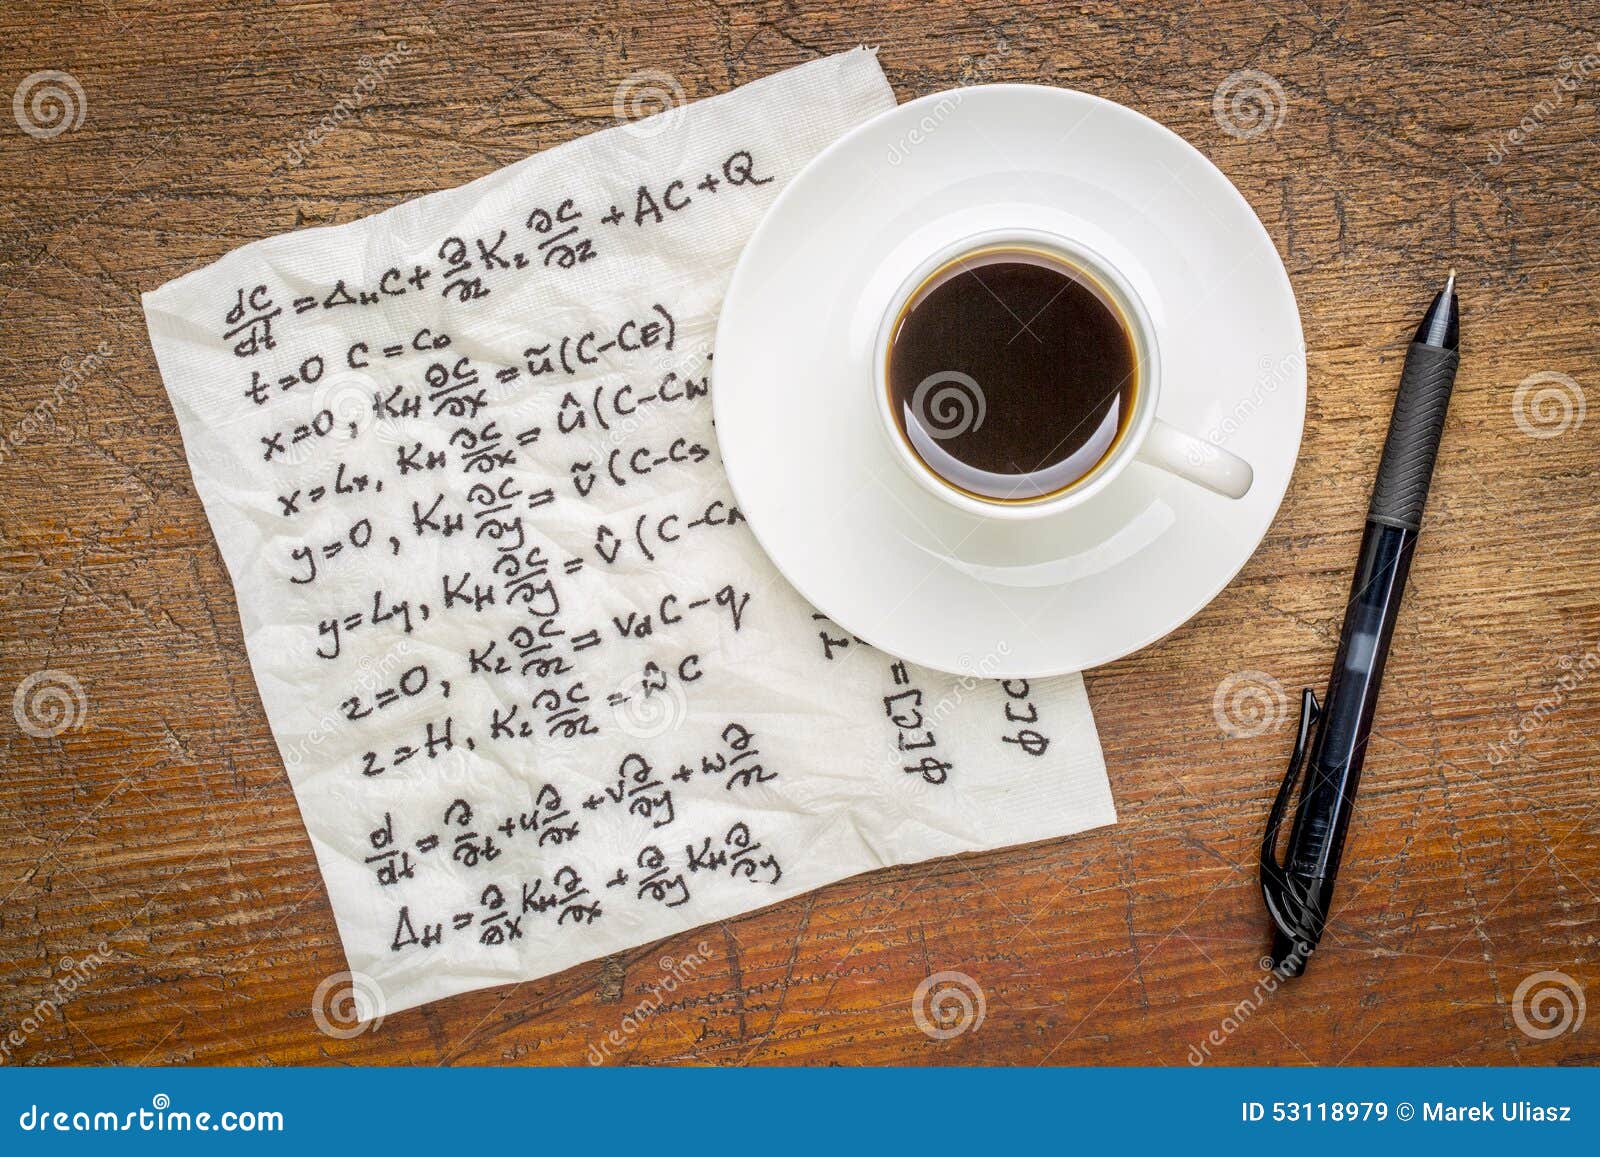 dC/dt = Δ_H C + ∂/∂z K_z ∂C/∂z + AC + Q
t=0 C = C_0
x=0, K_H ∂C/∂x = ũ(C-C_E)
x=L_x, K_H ∂C/∂x = û(C-C_W
y=0, K_H ∂C/∂y = ṽ(C-C_S
y=L_y, K_H ∂C/∂y = v̂(C-C_N
z=0, K_z ∂C/∂z = v_d C - q
z=H, K_z ∂C/∂z = ŵC
d/dt = ∂/∂t + u ∂/∂x + v ∂/∂y + w ∂/∂z
Δ_H = ∂/∂x K_H ∂/∂x + ∂/∂y K_H ∂/∂y
φ[C] =
φ[C
dreamstime.com
ID 53118979 © Marek Uliasz